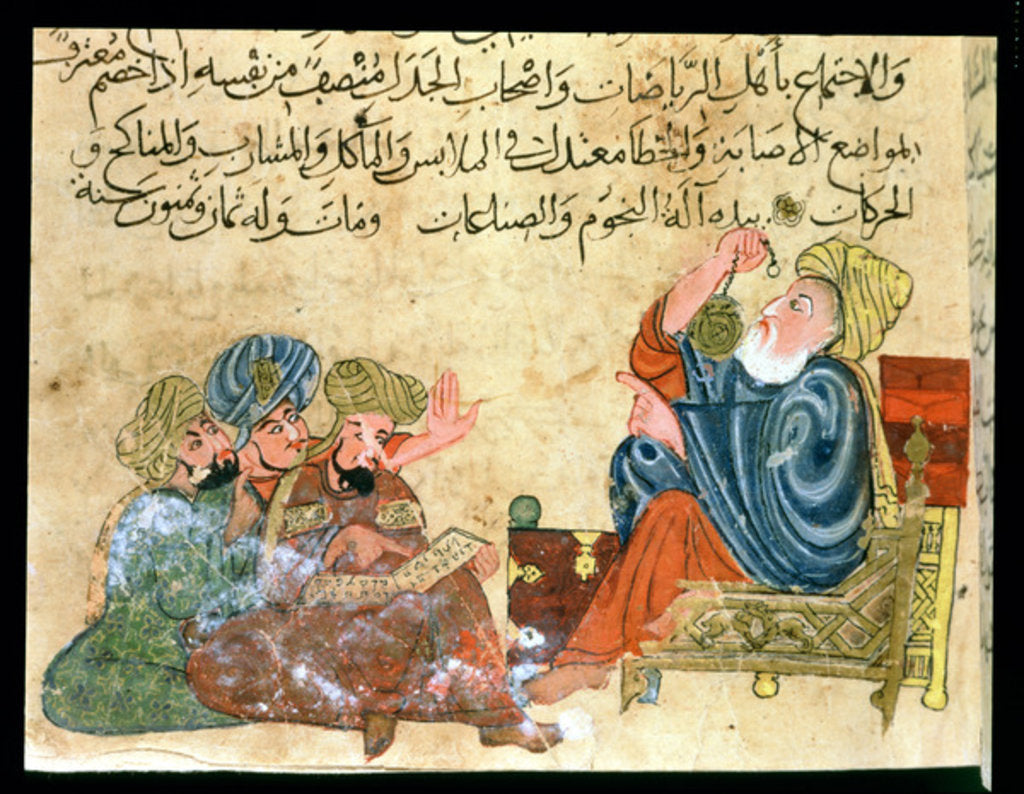 والاجتماع بأهل الرياضات واصحاب الجدل منصف من نفسه اذا خصم معترف
بمواضع الاصابة والخطا معتدل في الملابس والمآكل والمشارب والمناكح و
الحركات بيده آلة النجوم والصناعات ومات وله ثمان وثمنون سنة